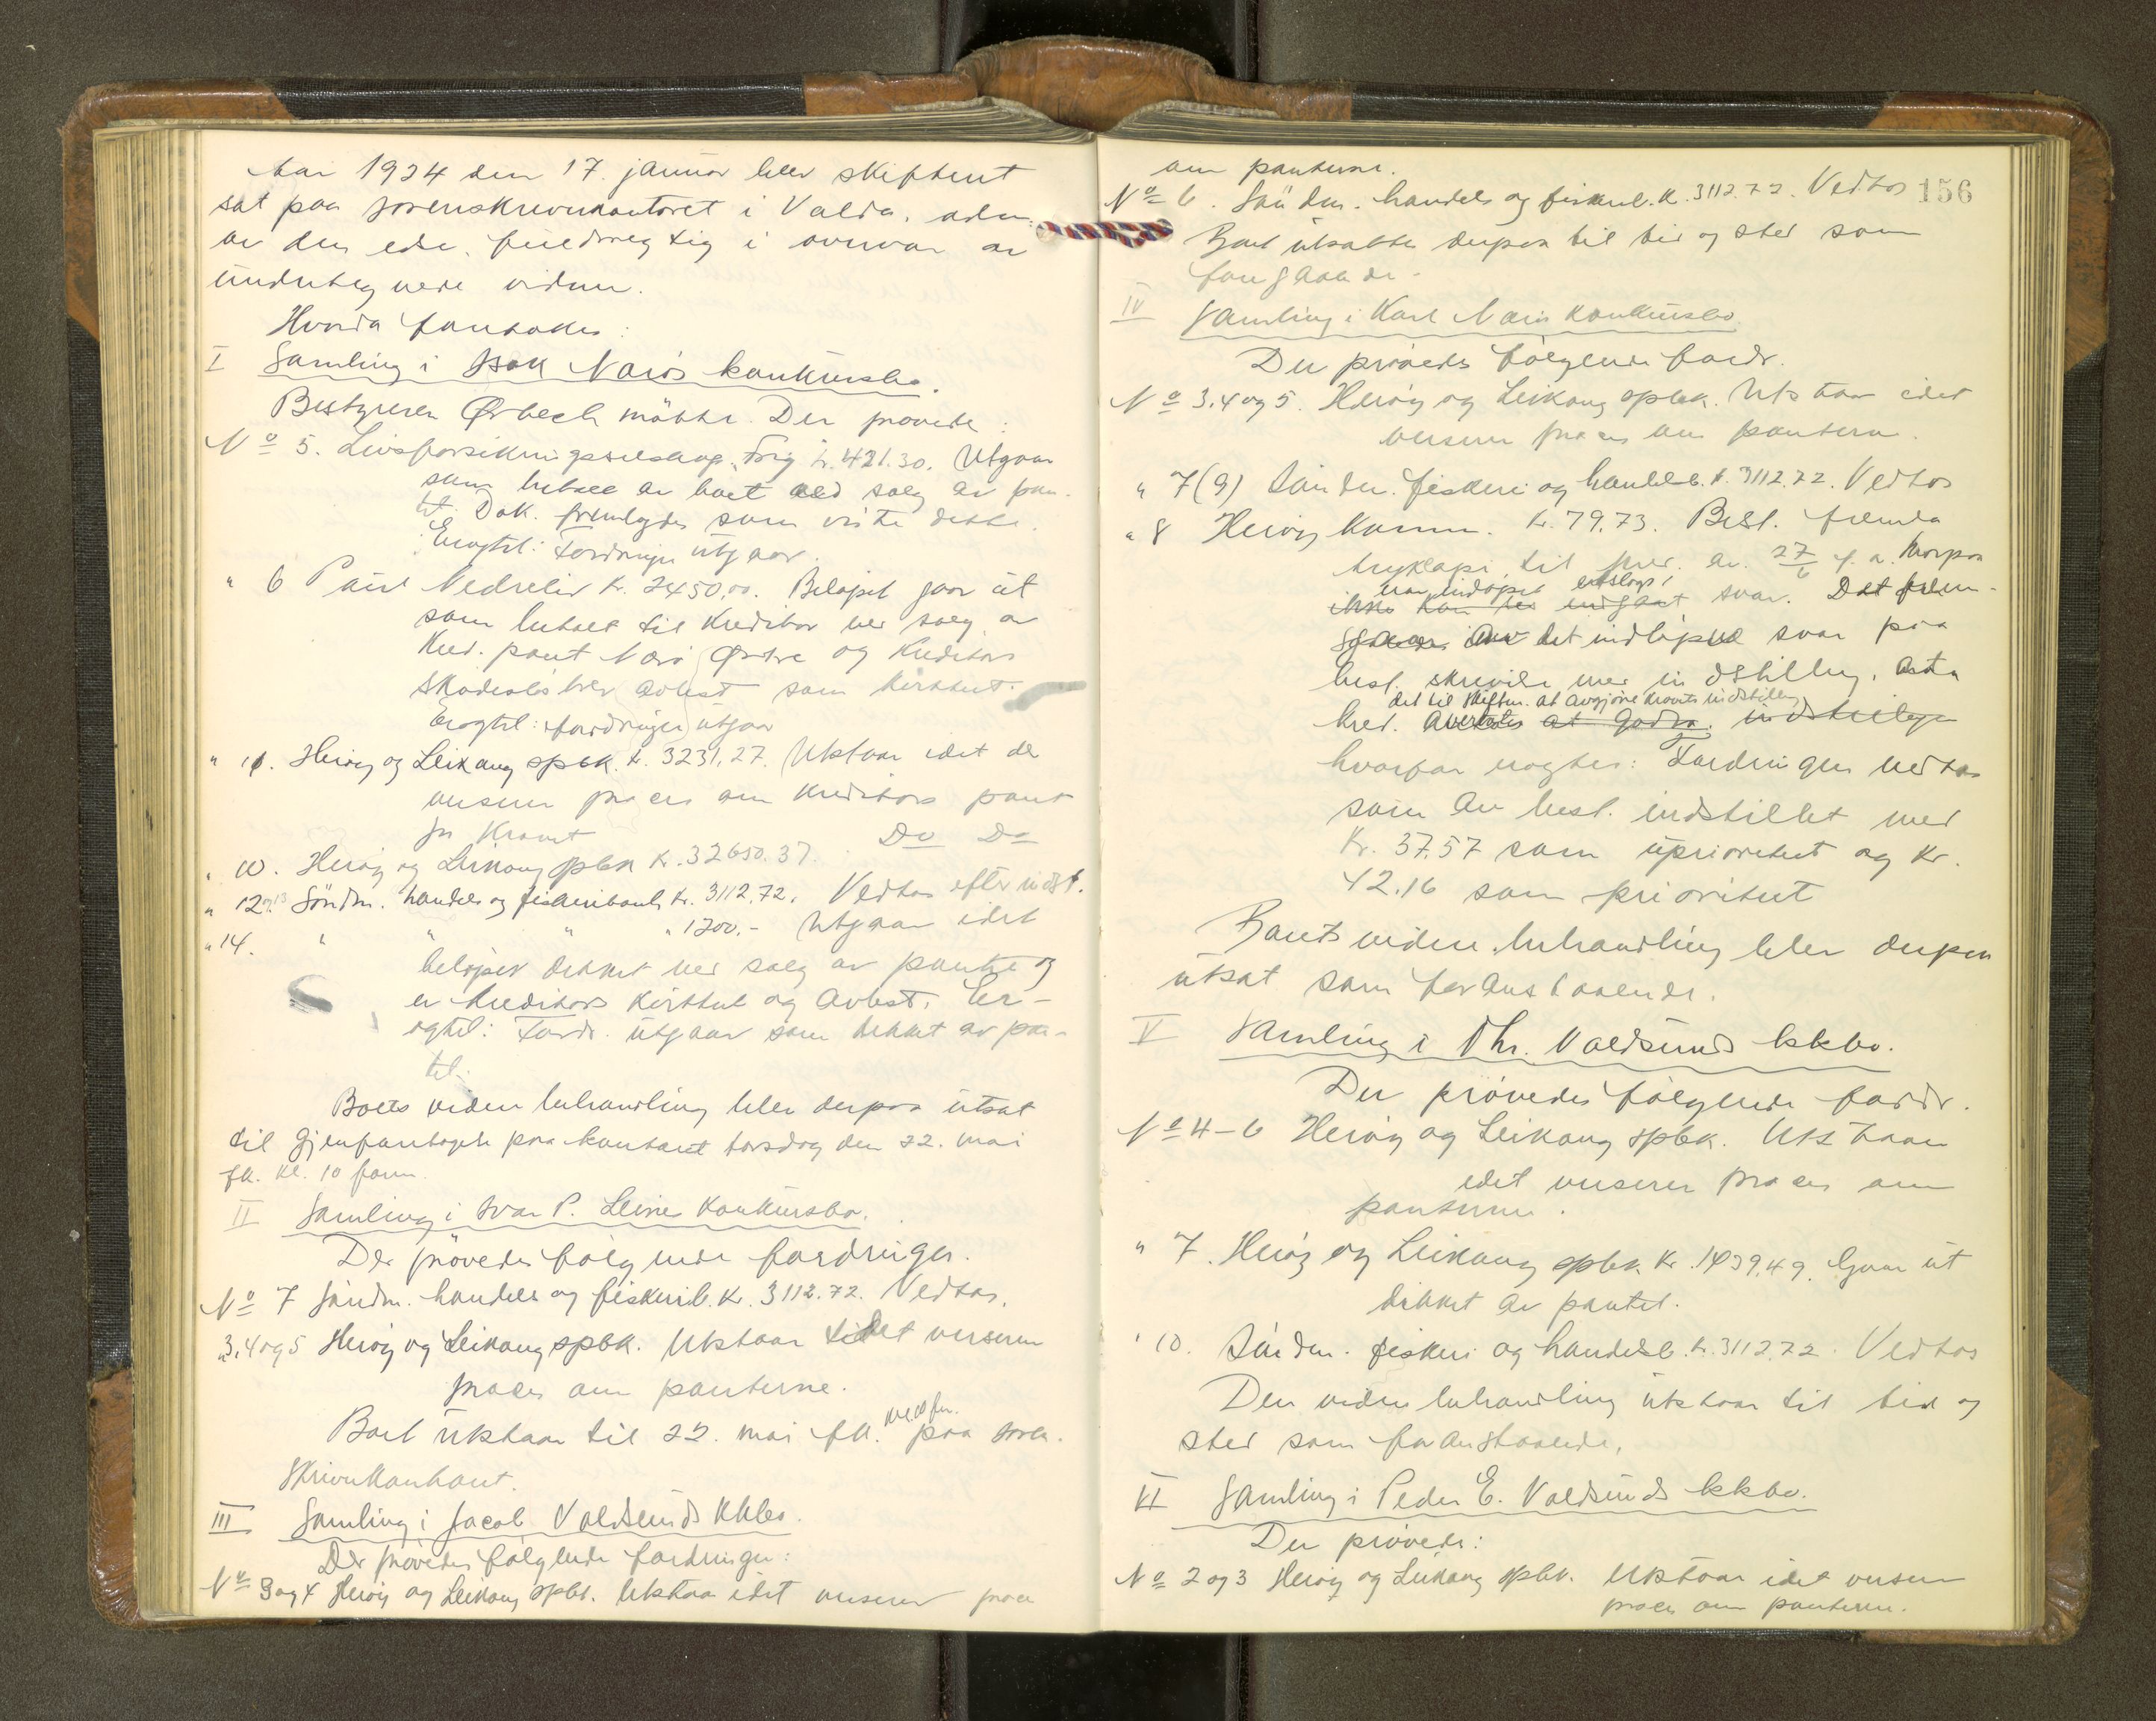 Aar 1924 den 17. januar blev skifteret
sat paa sorenskriverkontoret i Volda, adm.
av den edsv. fuldmegtig i overvær av
undertegnede vidner.
Hvorda foretokes:
I Samling i Isak Narøs konkursbo.
Bestyreren Ørbech mötte. Der prøvedes:
No 5. Livsforsikringsselskap. "Frig" kr. 421.30. Utgaar
som betalt av boet ved salg av pan-
tet. Dok. fremlagdes som viste dette.
Eragtet: Fordringen utgaar.
" 6 Paul Nedrelid kr. 2450.00. Beløpet gaar ut
som betalt til Kreditor ved salg av
Kred. pant Narø Østre og Kreditors
skadesløsbrev avlest som kvittert.
Eragtet: fordringen utgaar
" 11. Herøy og Leikang spbk. kr. 3231,27. Utstaar idet der
verserer proces om Kreditors pant
for Kravet
" 10. Herøy og Leikang spbk kr. 32650.37. Do Do
" 12 og 13 Söndm. handels og fiskeribank kr. 3112.72. Vedtas efter indst.
" 14. " " " " 1200.- Utgaar idet
beløpet dækket ved salg av pantet og
er kreditors kvittert og avlest. Er-
agtet: Fordr. utgaar som dekket av pan-
tet.
Boets videre behandling blev derpaa utsat
til gjenforetagelse paa kontoret torsdag den 22. mai
fk. kl. 10 form.
II Samling i Ivar P. Leine Konkursbo.
Der prøvedes følgende fordringer.
No 7 Söndm. handels og fiskerib. kr. 3112.72. Vedtas.
" 3,4 og 5 Herøy og Leikang spbk. Utstaar idet verserer
proces om panterne.
Boet utstaar til 22. mai fk. kl. 10 fm. paa soren-
skriverkontoret.
III Samling i Jacob Voldsunds kkbo.
Der prøvedes følgende fordringer:
No 3 og 4 Herøy og Leikang spbk. Utstaar idet verserer proces
om panterne. 156
No 6. Søndm. handels og fiskerib. kr. 3112.72. Vedtas
Boet utsattes derpaa til tid og sted som
foregaaende.
IV Samling i Karl Narøs konkursbo
Der prövedes følgende fordr.
No 3,4 og 5. Herøy og Leikang spbk. Utstaar idet
verserer proces om pantern.
" 7(9) Søndm. fiskeri og handelsb. kr. 3112.72. Vedtas
" 8 Herøy komm. kr. 79.73. Best. fremla
av 27/6 f. a. hvorpaa
ikke kan sees indgaat svar. Det frem-
det indløpne svar paa
best. skrivelse med indstilling,
det til Skifter. at avgjøre kravets indstilling
kred. at godta indstillingen
hvorfor eragtes: Fordringen vedtas
som av best. indstillet med
Kr. 37.57 som uprioritert og kr.
42.16 som prioritert
Boets videre behandling blev derpaa
utsat som foranstaaende.
V Samling i Chr. Voldsunds kkbo.
Der prøvedes følgende fordr.
No 4-6 Herøy og Leikang spbk. Utstaar
idet verserer proces om
panterne.
" 7. Herøy og Leikang spbk. kr. 1439.49. Gaar ut
dekket av pantet.
" 10. Søndm. fiskeri og handelsb. kr. 3112.72. Vedtas
Den videre behandling utstaar til tid og
sted som foranstaaende.
VI Samling i Peder E. Voldsunds kkbo.
Der prøvedes:
No 2 og 3 Herøy og Leikang spbk. Utstaar idet verserer
proces om panterne.